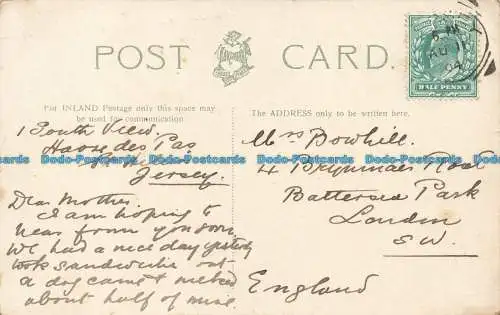 POST CARD.
For INLAND Postage only this space may
be used for communication
The ADDRESS only to be written here.
HALF PENNY
1 South View.
Havre des Pas
Jersey.
Dear Mother.
I am hoping to
hear from you soon.
We had a nice day yesterday
took sandwiches out
a dog came &
about half of mine.
Mrs Bowhill.
4 Road
Battersea Park
London
S.W.
England
Dodo-Postcards Dodo-Postcards Dodo-Postcards Dodo-Postcards Dodo-Postcards